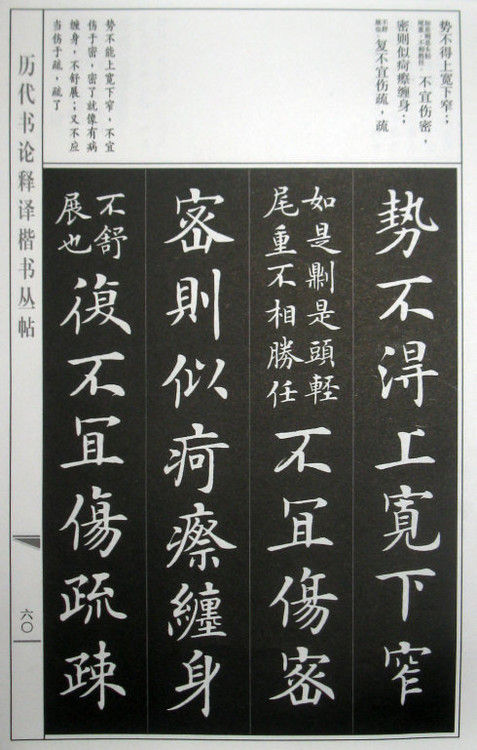 势不得上宽下窄;
如是则是头轻
尾重,不相胜任
不宜伤密,
密则似疴瘵缠身;
不舒
展也
复不宜伤疏,疏
势不能上宽下窄,不宜
伤于密,密了就像有病
缠身,不舒展;又不应
当伤于疏,疏了
勢不得上寛下窄
如是則是頭輕
尾重不相勝任
不冝傷密
密則似疴瘵纏身
不舒
展也
復不冝傷疏疎
历代书论释译楷书丛帖
六〇